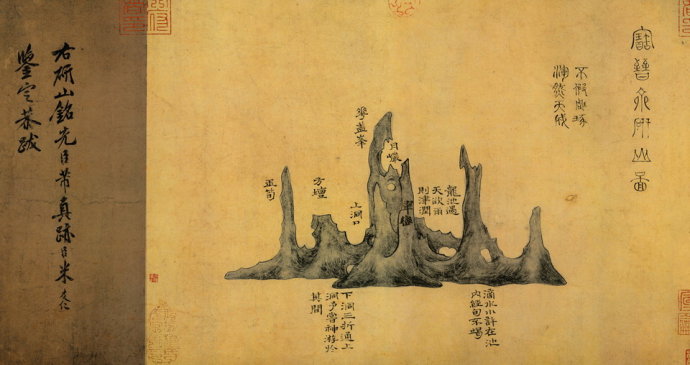 寶晉齋研山圖
不假雕琢
渾然天成
龍池遇
天欲雨
則津潤
滴水小許在池
內經旬不竭
翠巒
月巖
華蓋峯
上洞口
下洞三折通上
洞予嘗神游於
其間
方壇
玉筍
右研山銘先臣芾真跡臣米友仁
鑒定恭跋